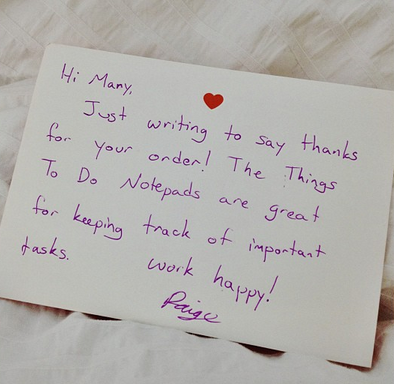 Hi Many,
Just writing to say thanks
for your order! The Things
To Do Notepads are great
for keeping track of important
tasks. work happy!
Paige